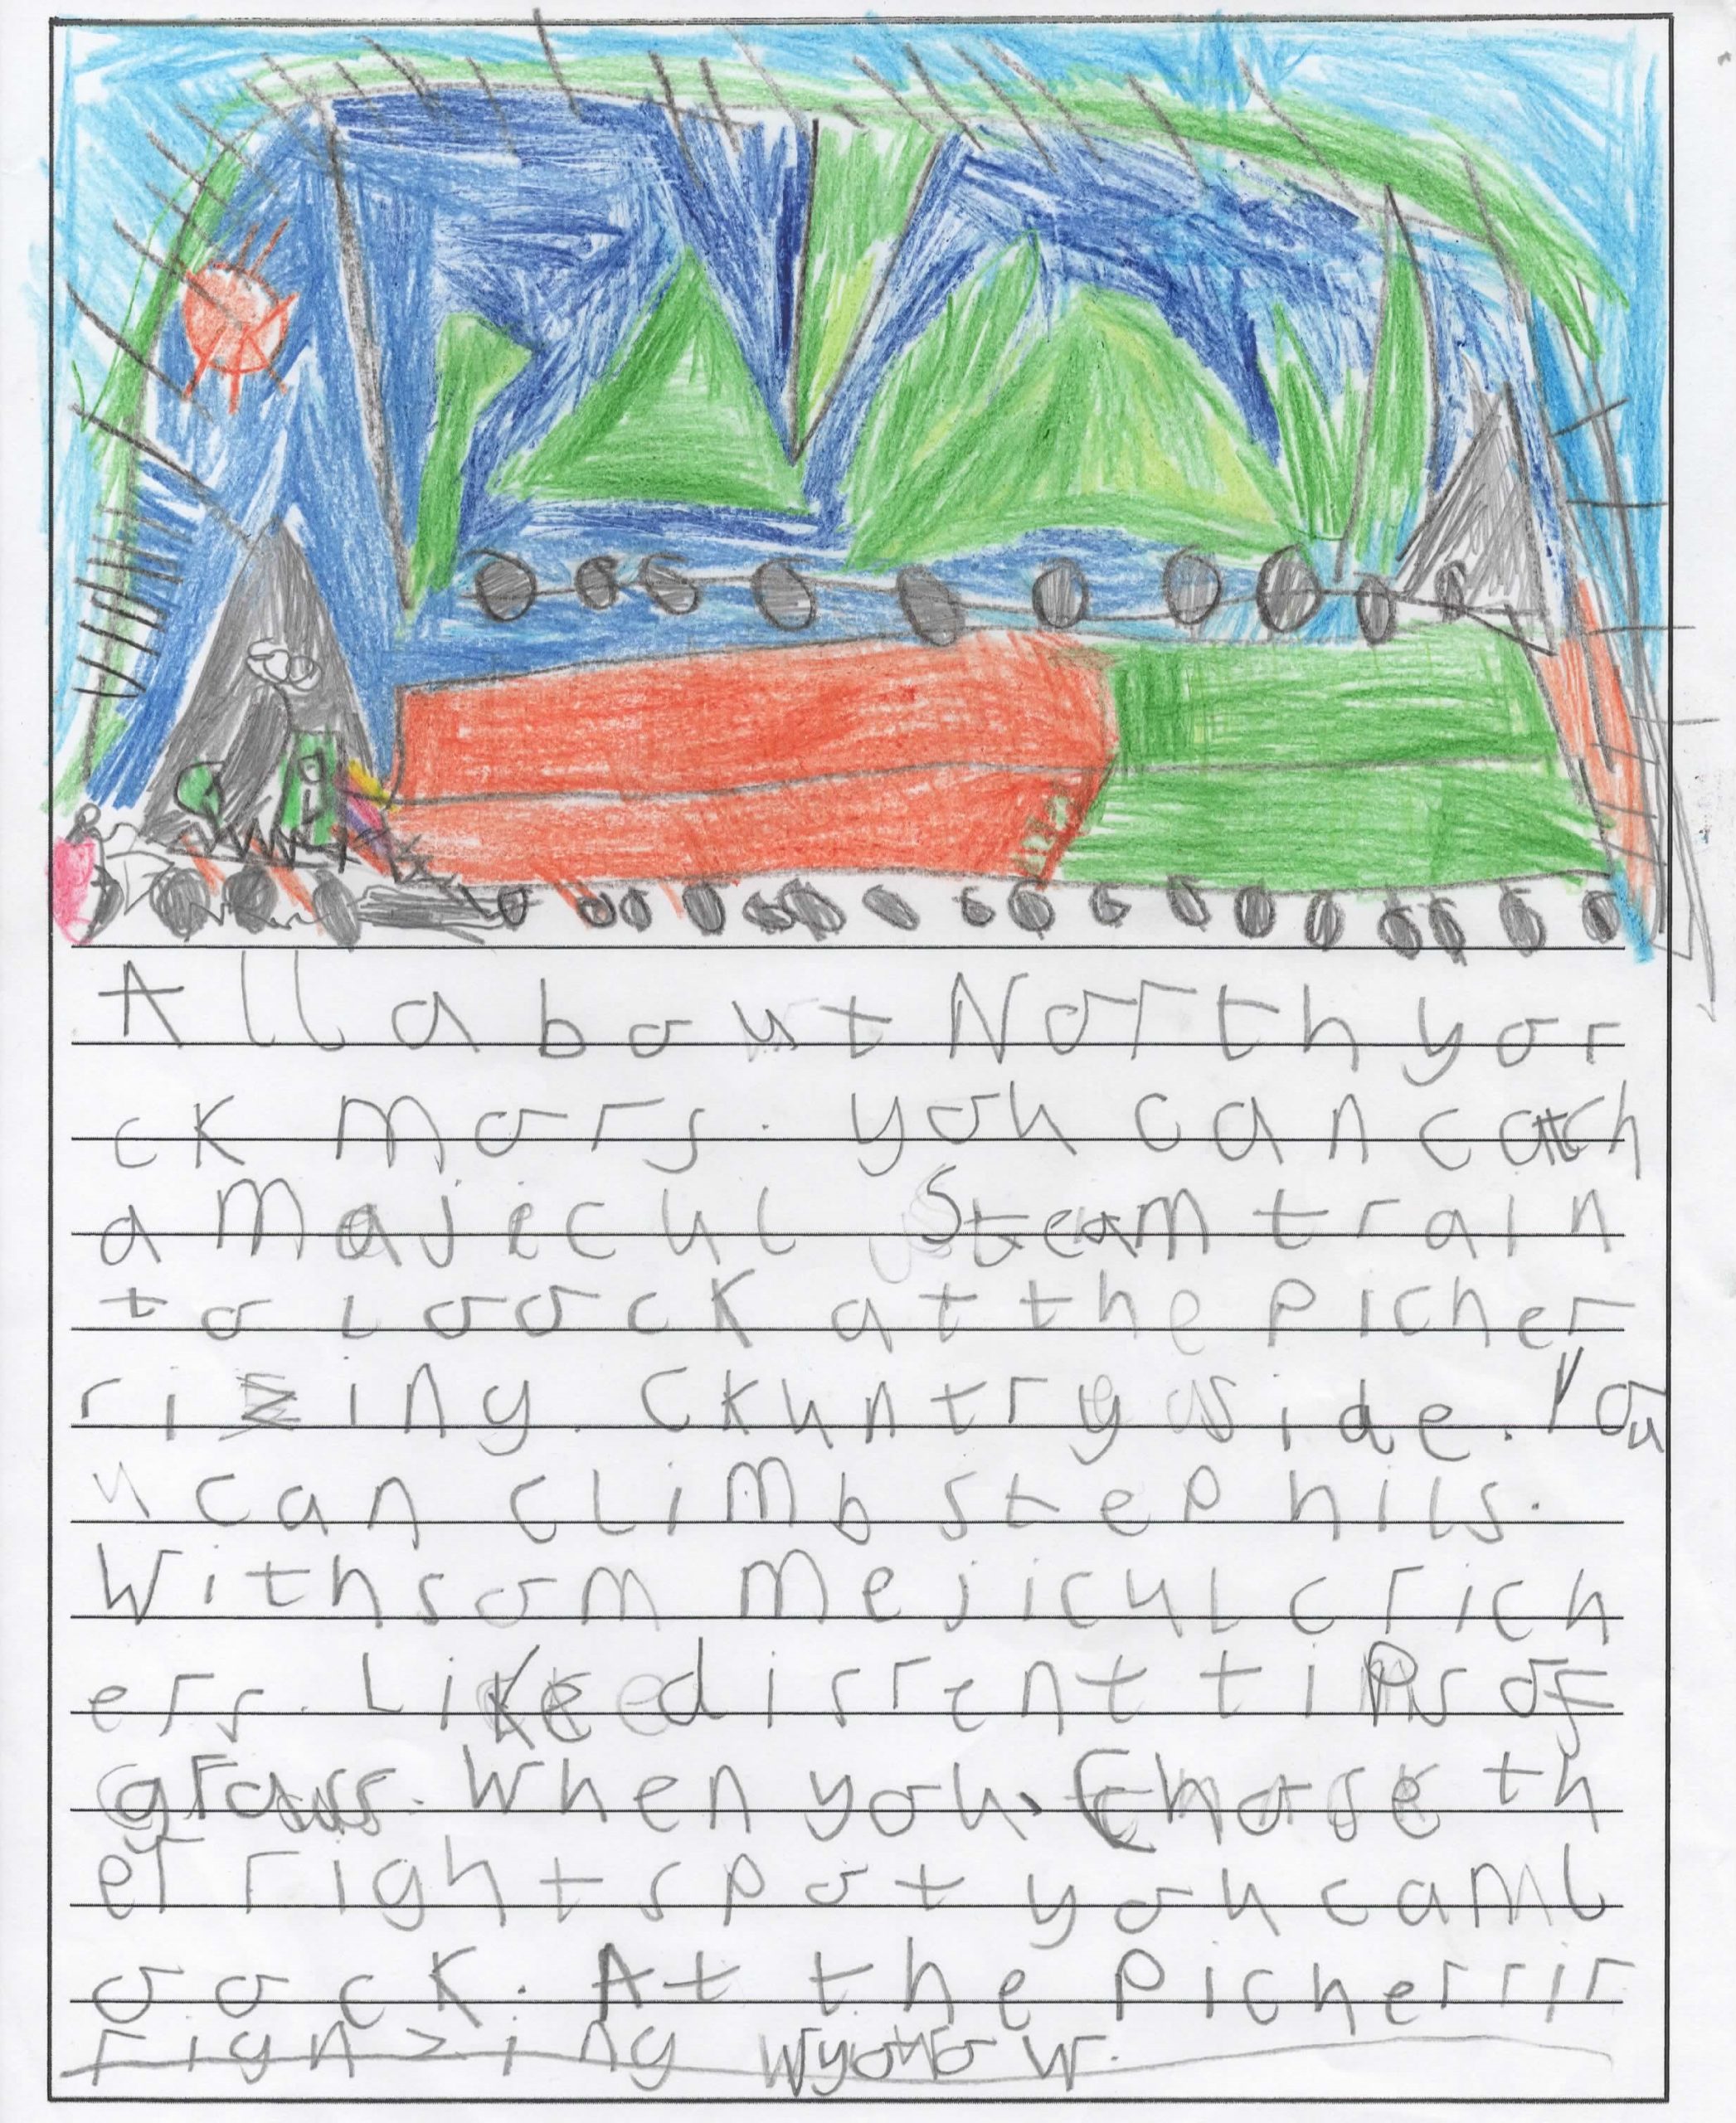 All about North yor
ck mors. you can catch
a majecul Steam train
to loock at the picher
rizing. ckuntryside. You
can climb step hills.
With som mejicul crich
ers. Like disrrent tips of
grass. When you. Chose th
er right spot you caml
oock. At the picherrir